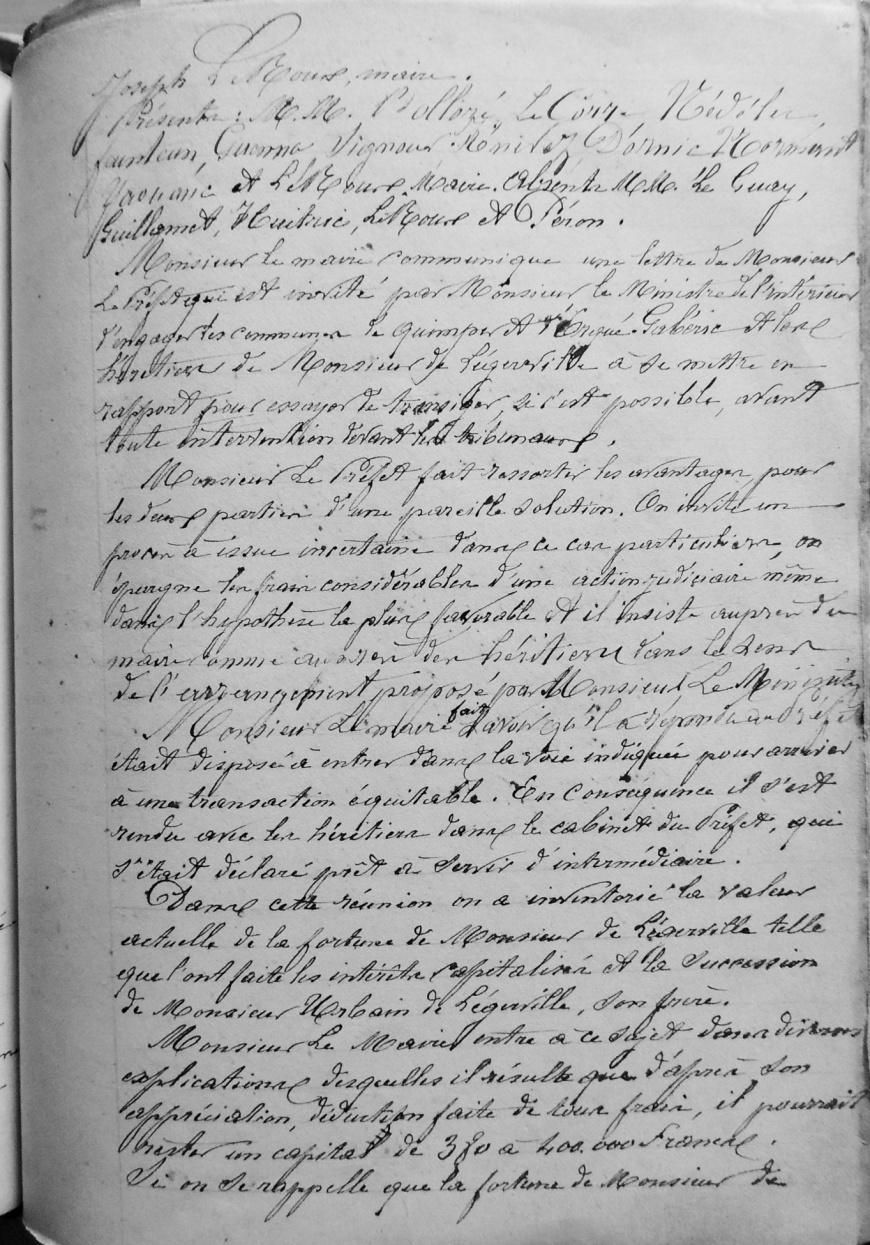 Joseph Le Roux, maire.
Présents: M.M. Bolloré, Le Corre, Nédélec,
Feunteun, Guenno, Signour, Dornic, Normant
et Le Roux, Maire. Absents M.M. Le Guay,
Guillamet, Huitric, Le Roux et Péron.
Monsieur le maire communique une lettre de Monsieur
Le Préfet qui est invité par Monsieur le Ministre de l'intérieur
d'engager les communes de quimper et d'Ergué-Gabéric et les
héritiers de Monsieur de Légerville à se mettre en
rapport pour essayer de transiger, si c'est possible, avant
toute intervention devant les tribunaux.
Monsieur Le Préfet fait ressortir les avantages, pour
les deux parties d'une pareille solution. On invite un
procès à issue incertaine dans ce cas particuliers, on
épargne les frais considérables d'une action judiciaire même
dans l'hypothèse la plus favorable et il insiste auprès du
maire comme auprès des héritiers dans le sens
de l'arrangement proposé par Monsieur Le Ministre
Monsieur Le maire fait savoir qu'il a répondu au Préfet
était disposé à entrer dans la voie indiquée pour arriver
à une transaction équitable. En conséquence il s'est
rendu avec les héritiers dans le cabinet du Préfet, qui
s'était déclaré prêt à servir d'intermédiaire.
Dans cette réunion on a inventorié la valeur
actuelle de la fortune de Monsieur de Légerville telle
que l'ont faite les intérêts capitalisés et la succession
de Monsieur Urbain de Légerville, son frère.
Monsieur Le Maire entre à ce sujet dans diverses
explications desquelles il résulte que d'après son
appréciation, déduction faite de tous frais, il pourrait
rester un capital de 380 à 400.000 Francs.
Si on se rappelle que la fortune de Monsieur de